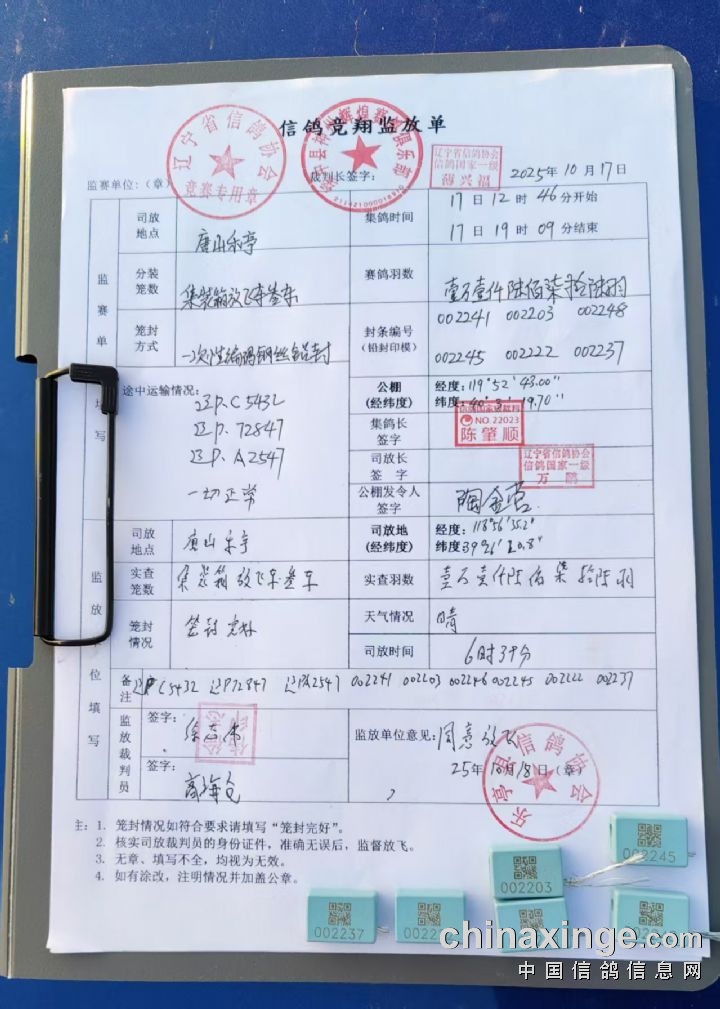 信鸽竞翔监放单
辽宁省信鸽协会
竞赛专用章
监赛单位:(章)
裁判长签字:
辽宁省信鸽协会
信鸽国家一级
2025年10月17日
监赛单
填写
司放地点
唐山乐亭
集鸽时间
17日12时46分开始
17日19时09分结束
分装笼数
集装箱放飞车叁车
赛鸽羽数
壹万壹仟陆佰柒拾陆羽
笼封方式
一次性编码钢丝铅封
封条编号
(铅封印模)
002241 002203 002248
002245 002222 002237
途中运输情况:
辽P.C5432
辽P.72847
辽P.A2547
一切正常
公棚
(经纬度)
经度:119°52′43.00″
纬度:40°3′19.70″
集鸽长签字
NO.22023
陈肇顺
司放长签字
辽宁省信鸽协会
信鸽国家一级
万鹏
公棚发令人签字
监放
位填写
司放地点
唐山乐亭
司放地
(经纬度)
经度:118°56′35.2″
纬度39°26′20.8″
实查笼数
集装箱放飞车叁车
实查羽数
壹万壹仟陆佰柒拾陆羽
笼封情况
签封完好
天气情况
晴
司放时间
6时30分
备注
辽PC5432 辽P72847 辽PA2547 002241 002203 002248 002245 002222 002237
监放裁判员
签字:
签字:
监放单位意见:同意放飞
25年10月18日(章)
乐亭县信鸽协会
注:1. 笼封情况如符合要求请填写“笼封完好”。
2. 核实司放裁判员的身份证件,准确无误后,监督放飞。
3. 无章、填写不全,均视为无效。
4. 如有涂改,注明情况并加盖公章。
002245
002203
002237
chinaxinge.com
中国信鸽信息网